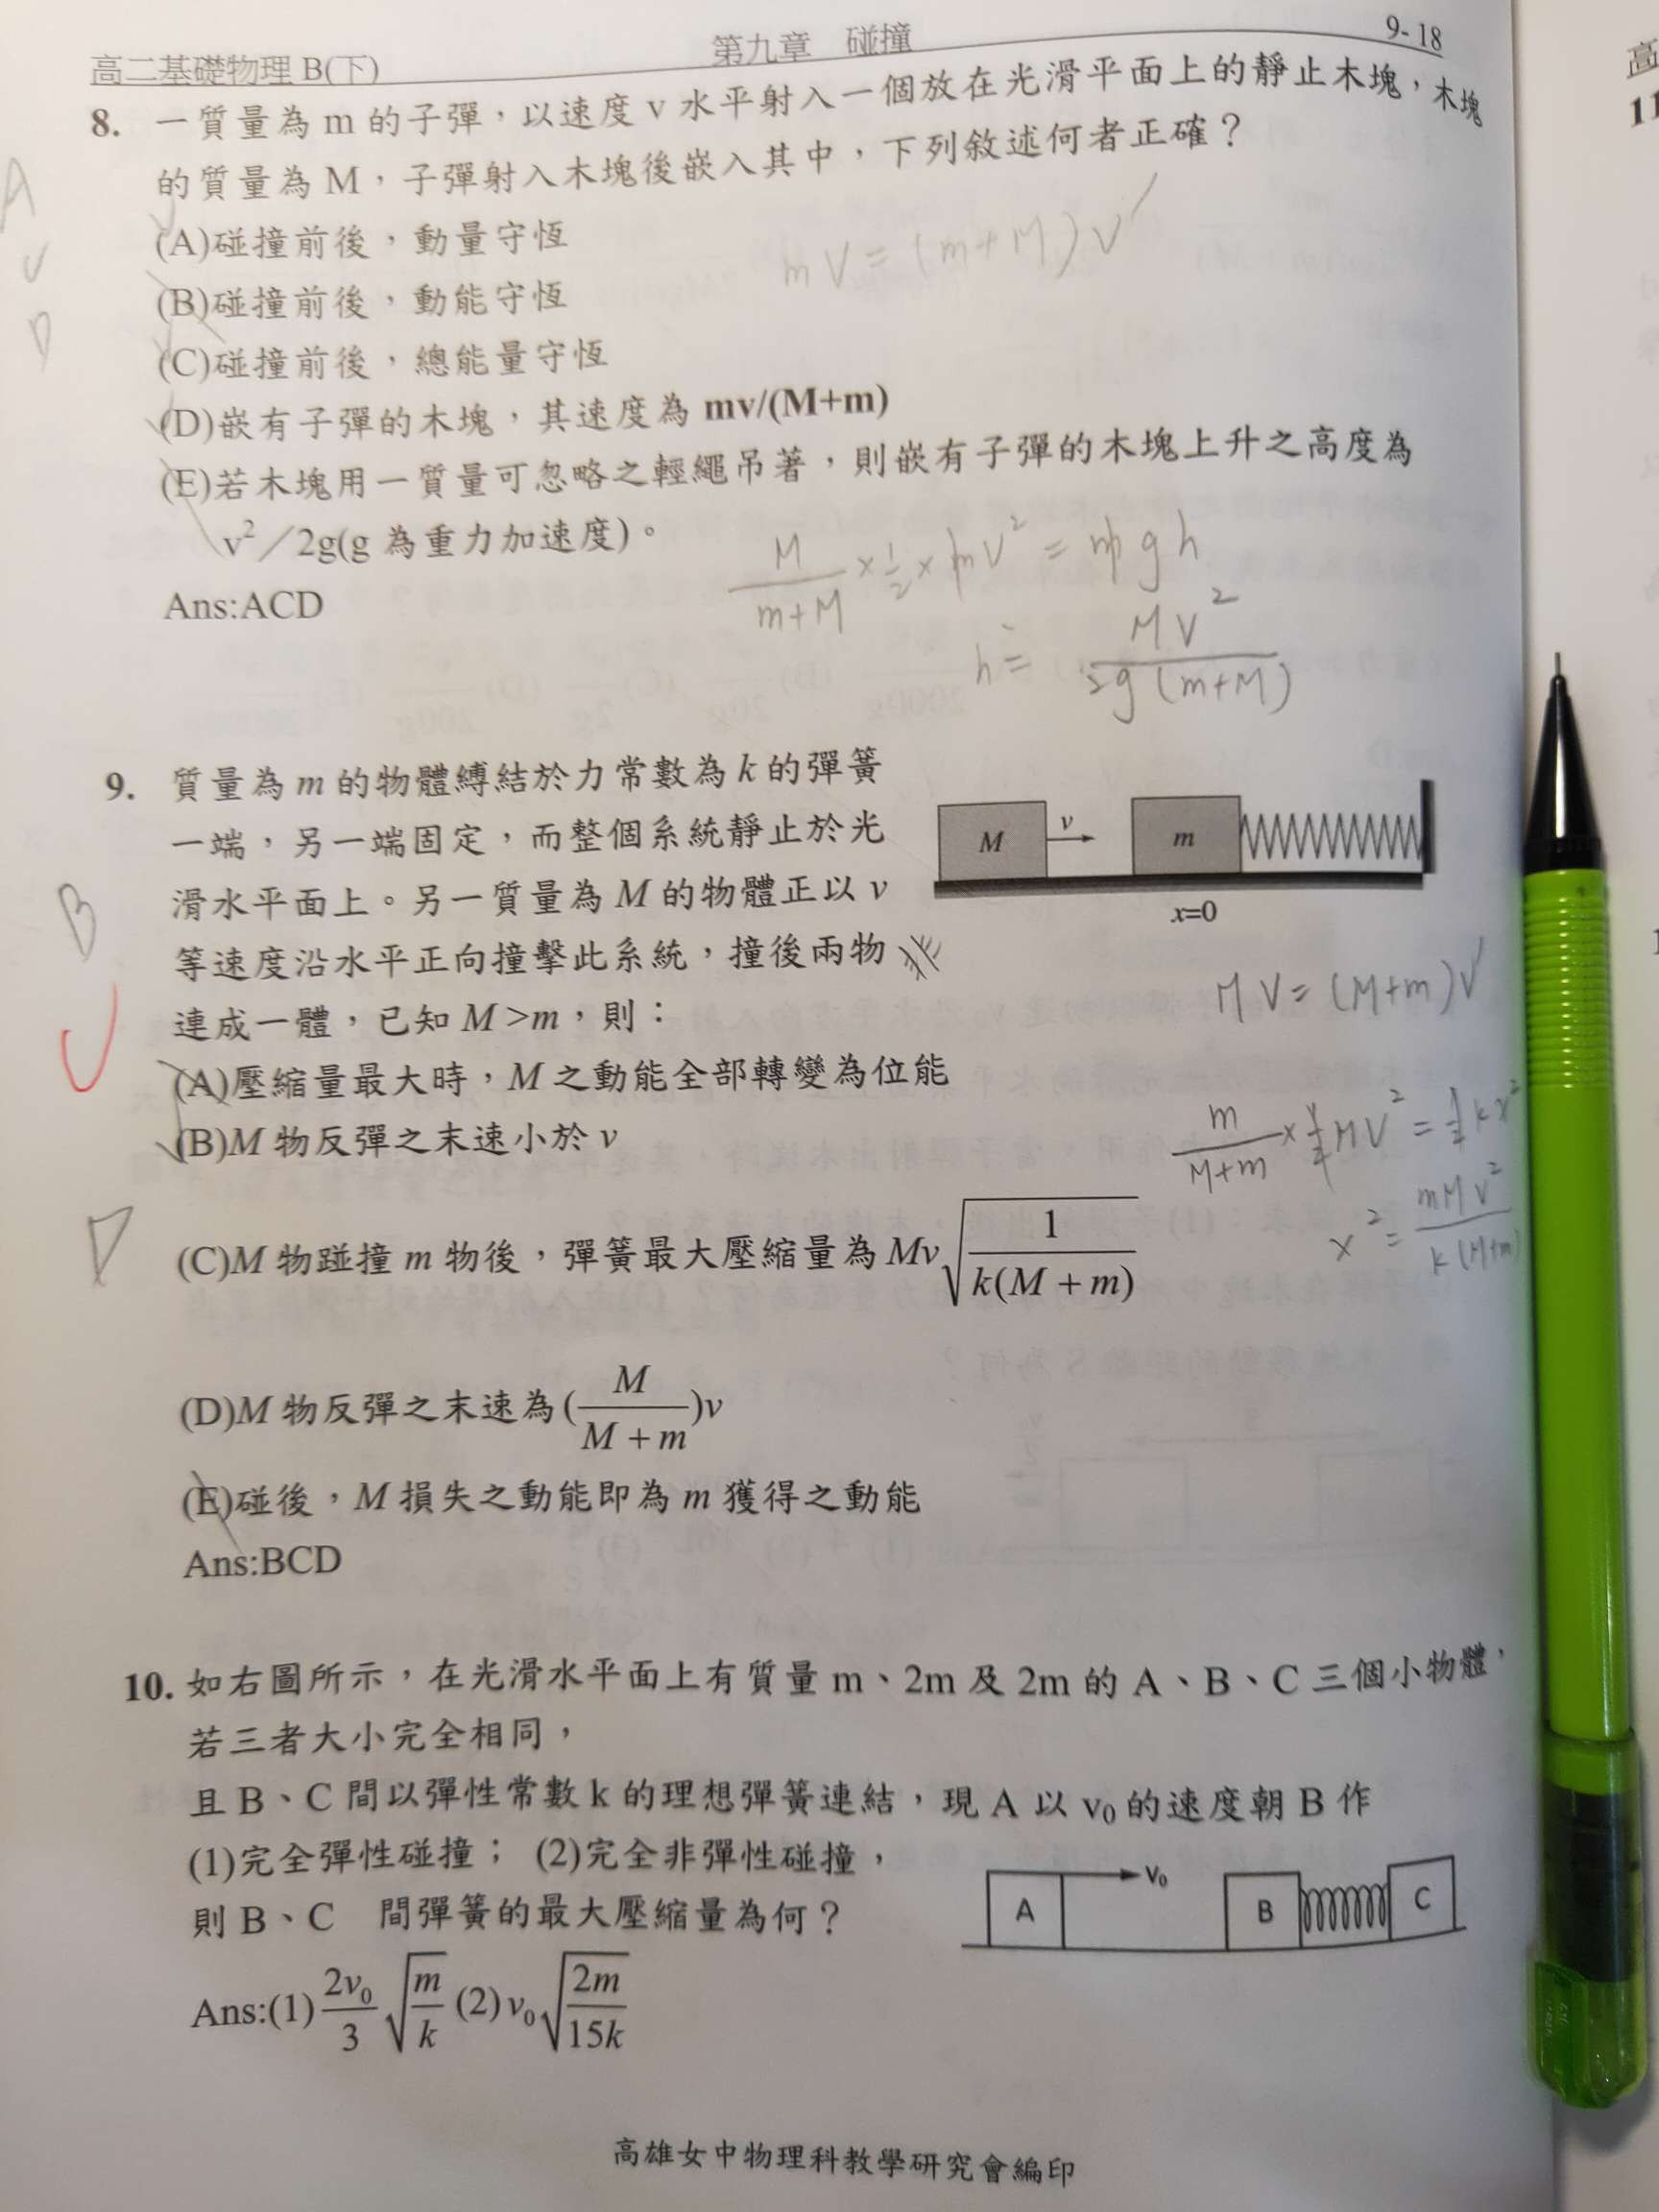 高二基礎物理 B(下)
第九章　碰撞
9-18
8. 一質量為 m 的子彈，以速度 v 水平射入一個放在光滑平面上的靜止木塊，木塊
的質量為 M，子彈射入木塊後嵌入其中，下列敘述何者正確？
(A)碰撞前後，動量守恆
mV = (m+M)V'
(B)碰撞前後，動能守恆
(C)碰撞前後，總能量守恆
(D)嵌有子彈的木塊，其速度為 mv/(M+m)
(E)若木塊用一質量可忽略之輕繩吊著，則嵌有子彈的木塊上升之高度為
v²／2g(g 為重力加速度)。
M/(m+M) × 1/2 × mV² = mgh
Ans:ACD
h = MV²/2g(m+M)
A
D
9. 質量為 m 的物體縛結於力常數為 k 的彈簧
一端，另一端固定，而整個系統靜止於光
滑水平面上。另一質量為 M 的物體正以 v
等速度沿水平正向撞擊此系統，撞後兩物
連成一體，已知 M >m，則：
M
v
m
x=0
MV = (M+m)V'
(A)壓縮量最大時，M 之動能全部轉變為位能
(B)M 物反彈之末速小於 v
m/(M+m) × 1/2 MV² = 1/2 kx²
x² = mMV²/k(M+m)
(C)M 物碰撞 m 物後，彈簧最大壓縮量為 Mv√(1/k(M + m))
(D)M 物反彈之末速為 (M/(M + m))v
(E)碰後，M 損失之動能即為 m 獲得之動能
Ans:BCD
B
D
10. 如右圖所示，在光滑水平面上有質量 m、2m 及 2m 的 A、B、C 三個小物體，
若三者大小完全相同，
且 B、C 間以彈性常數 k 的理想彈簧連結，現 A 以 v₀ 的速度朝 B 作
(1)完全彈性碰撞； (2)完全非彈性碰撞，
則 B、C　間彈簧的最大壓縮量為何？
A
V₀
B
C
Ans:(1) 2v₀/3 √(m/k) (2) v₀√(2m/15k)
高雄女中物理科教學研究會編印
高
11